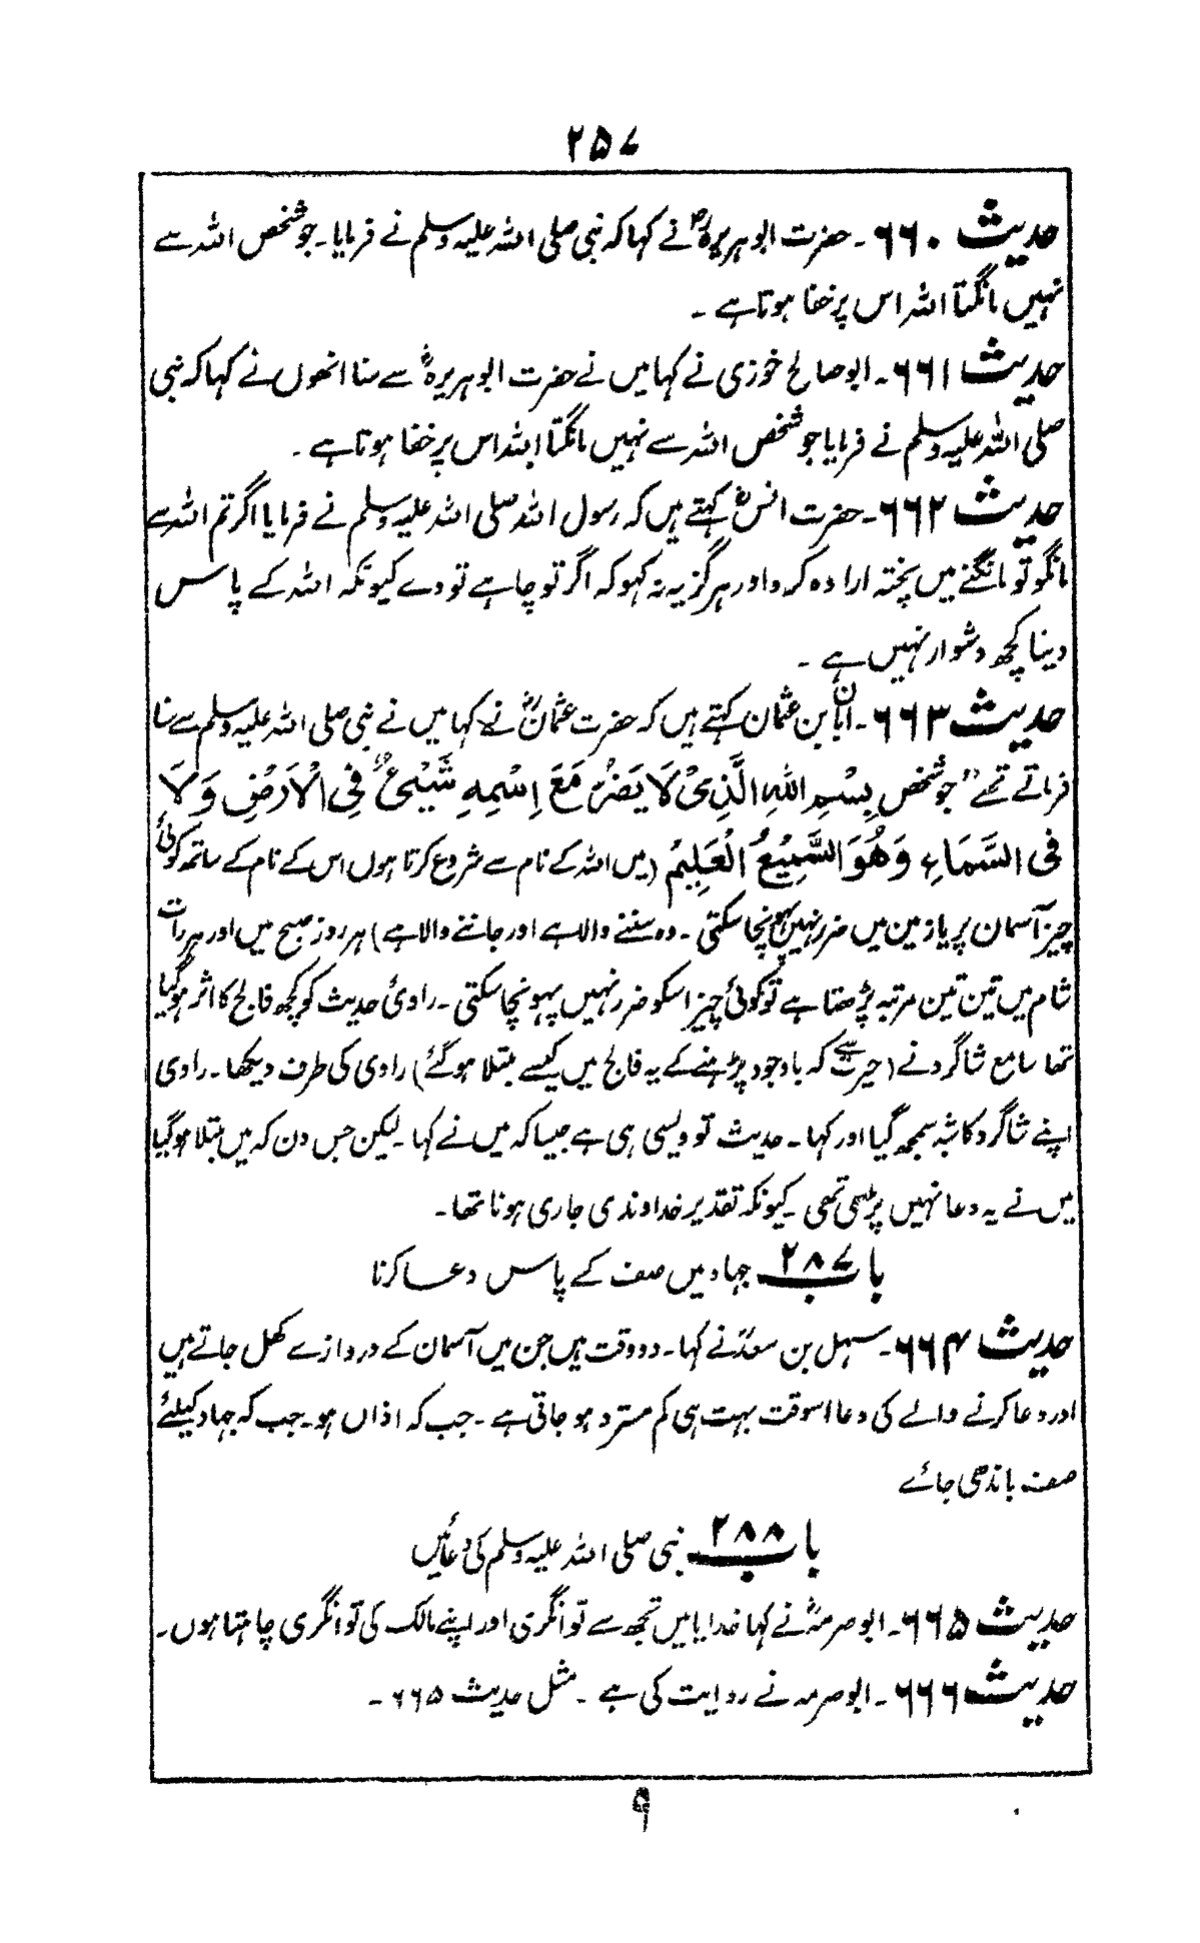 ۲۵۷
حدیث ۶۶۰ ۔ حضرت ابو ہریرہؓ نے کہا کہ نبی صلی اللہ علیہ وسلم نے فرمایا۔ جو شخص اللہ سے
نہیں مانگتا اللہ اس پر خفا ہوتا ہے ۔
حدیث ۶۶۱ ۔ ابو صالح خوزی نے کہا میں نے حضرت ابو ہریرہؓ سے سنا انھوں نے کہا کہ نبی
صلی اللہ علیہ وسلم نے فرمایا جو شخص اللہ سے نہیں مانگتا اللہ اس پر خفا ہوتا ہے ۔
حدیث ۶۶۲ ۔ حضرت انسؓ کہتے ہیں کہ رسول اللہ صلی اللہ علیہ وسلم نے فرمایا اگر تم اللہ سے
مانگو تو مانگنے میں پختہ ارادہ کرو اور ہرگز یہ نہ کہو کہ اگر تو چاہے تو دے کیونکہ اللہ کے پاس
دینا کچھ دشوار نہیں ہے ۔
حدیث ۶۶۳ ۔ ابان بن عثمان کہتے ہیں کہ حضرت عثمانؓ نے کہا میں نے نبی صلی اللہ علیہ وسلم سے سنا
فرماتے تھے ’’جو شخص بِسْمِ اللهِ الَّذِىْ لَا يَضُرُّ مَعَ اِسْمِهٖ شَيْىءٌ فِى الْاَرْضِ وَلَا
فِى السَّمَاءِ وَهُوَ السَّمِيْعُ الْعَلِيْمُ (میں اللہ کے نام سے شروع کرتا ہوں اس کے نام کے ساتھ کوئی
چیز آسمان پر یا زمین میں ضرر نہیں پہونچا سکتی ۔ وہ سننے والا ہے اور جاننے والا ہے) ہر روز صبح میں اور ہر رات
شام میں تین تین مرتبہ پڑھتا ہے تو کوئی چیز اسکو ضرر نہیں پہونچا سکتی ۔ راوئ حدیث کو کچھ فالج کا اثر ہو گیا
تھا سامع شاگرد نے (حیرت سے کہ باوجود پڑہنے کے یہ فالج میں کیسے مبتلا ہو گئے) راوی کی طرف دیکھا ۔ راوی
اپنے شاگرد کا شبہ سمجھ گیا اور کہا ۔ حدیث تو ویسی ہی ہے جیسا کہ میں نے کہا ۔ لیکن جس دن کہ میں مبتلا ہو گیا
میں نے یہ دعا نہیں پڑھی تھی ۔ کیونکہ تقدیر خداوندی جاری ہونا تھا ۔
باب ۲۸۷ جہاد میں صف کے پاس دعا کرنا
حدیث ۶۶۴ ۔ سہل بن سعدؓ نے کہا ۔ دو وقت ہیں جن میں آسمان کے دروازے کھل جاتے ہیں
اور دعا کرنے والے کی دعا اسوقت بہت ہی کم مسترد ہو جاتی ہے ۔ جب کہ اذاں ہو ۔ جب کہ جہاد کیلئے
صف باندھی جائے
باب ۲۸۸ نبی صلی اللہ علیہ وسلم کی دعائیں
حدیث ۶۶۵ ۔ ابو صرمہؓ نے کہا خدایا میں تجھ سے تو انگری اور اپنے مالک کی تو انگری چاہتا ہوں ۔
حدیث ۶۶۶ ۔ ابو صرمہ نے روایت کی ہے ۔ مثل حدیث ۶۶۵ ۔
۹